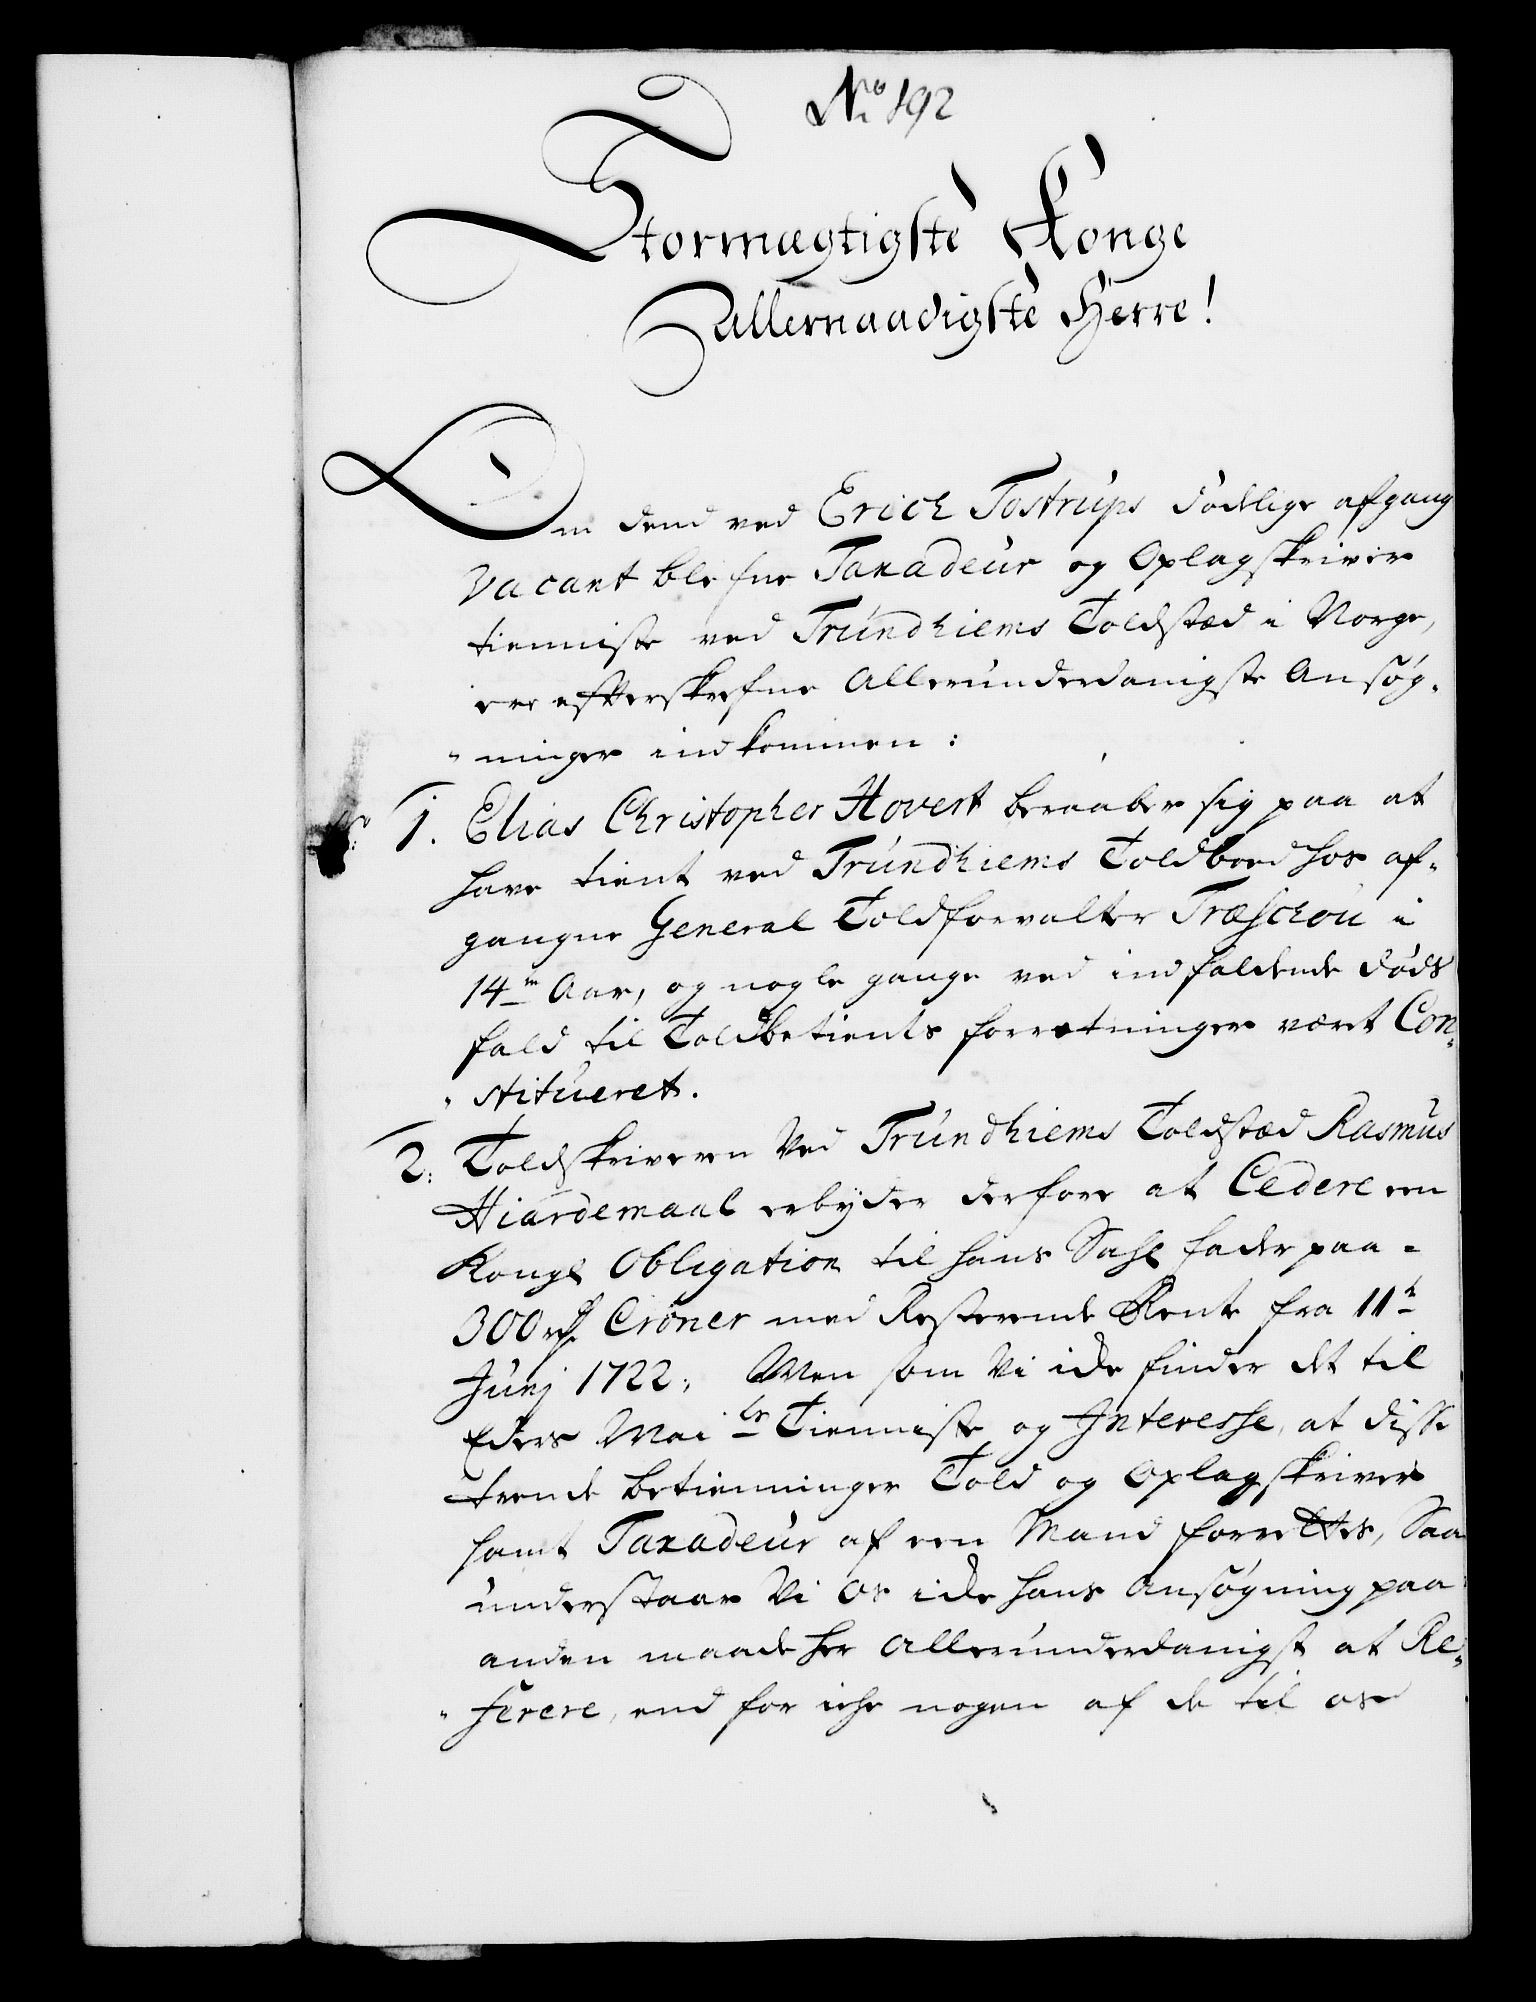 No 192
Stormægtigste Konge
allernaadigste Herre!
Om dend ved Erich Tostrups dødelige afgang
vacant blefne Taxadeur og Oplagskriver
tienniste ved Trundhiems Toldsted i Norge,
ere efterskrefne Allerunderdanigste Ansøg-
ninger indkommen:
1. Elias Christopher Hovert beraaber sig paa at
have tient ved Trundhiems Toldboed hos af-
gangne General Toldforvalter Træschou i
14ten Aar, og nogle gange ved indfaldende døds
fald til Toldbetients forretninger været Con-
stitueret.
2. Toldskriveren Ved Trundhiems Toldsted Rasmus
Hiardemaal erbyder derfore at Cedere een
Kongl Obligation til hans Sahl fader paa
300 rdr Croner med Resterende Rente fra 11te
Junj 1722, Men som Vi icke finder det til
Eders Maits Tienniste og Interesse, at disse
trende betienninger Told og Oplagskriver
samt Taxadeur af een Mand forrettes, Saa
understaar Vi os icke hans Ansøgning paa
anden maade her Allerunderdanigst at Re-
ferere, end for iche nogen af de til os